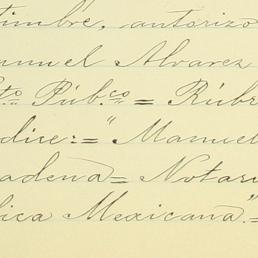 timbre, autorizo
anuel Alvarez
to Púb.co = Rúbr
dice: = "Manuel
adena = Notari
lica Mexicana." =